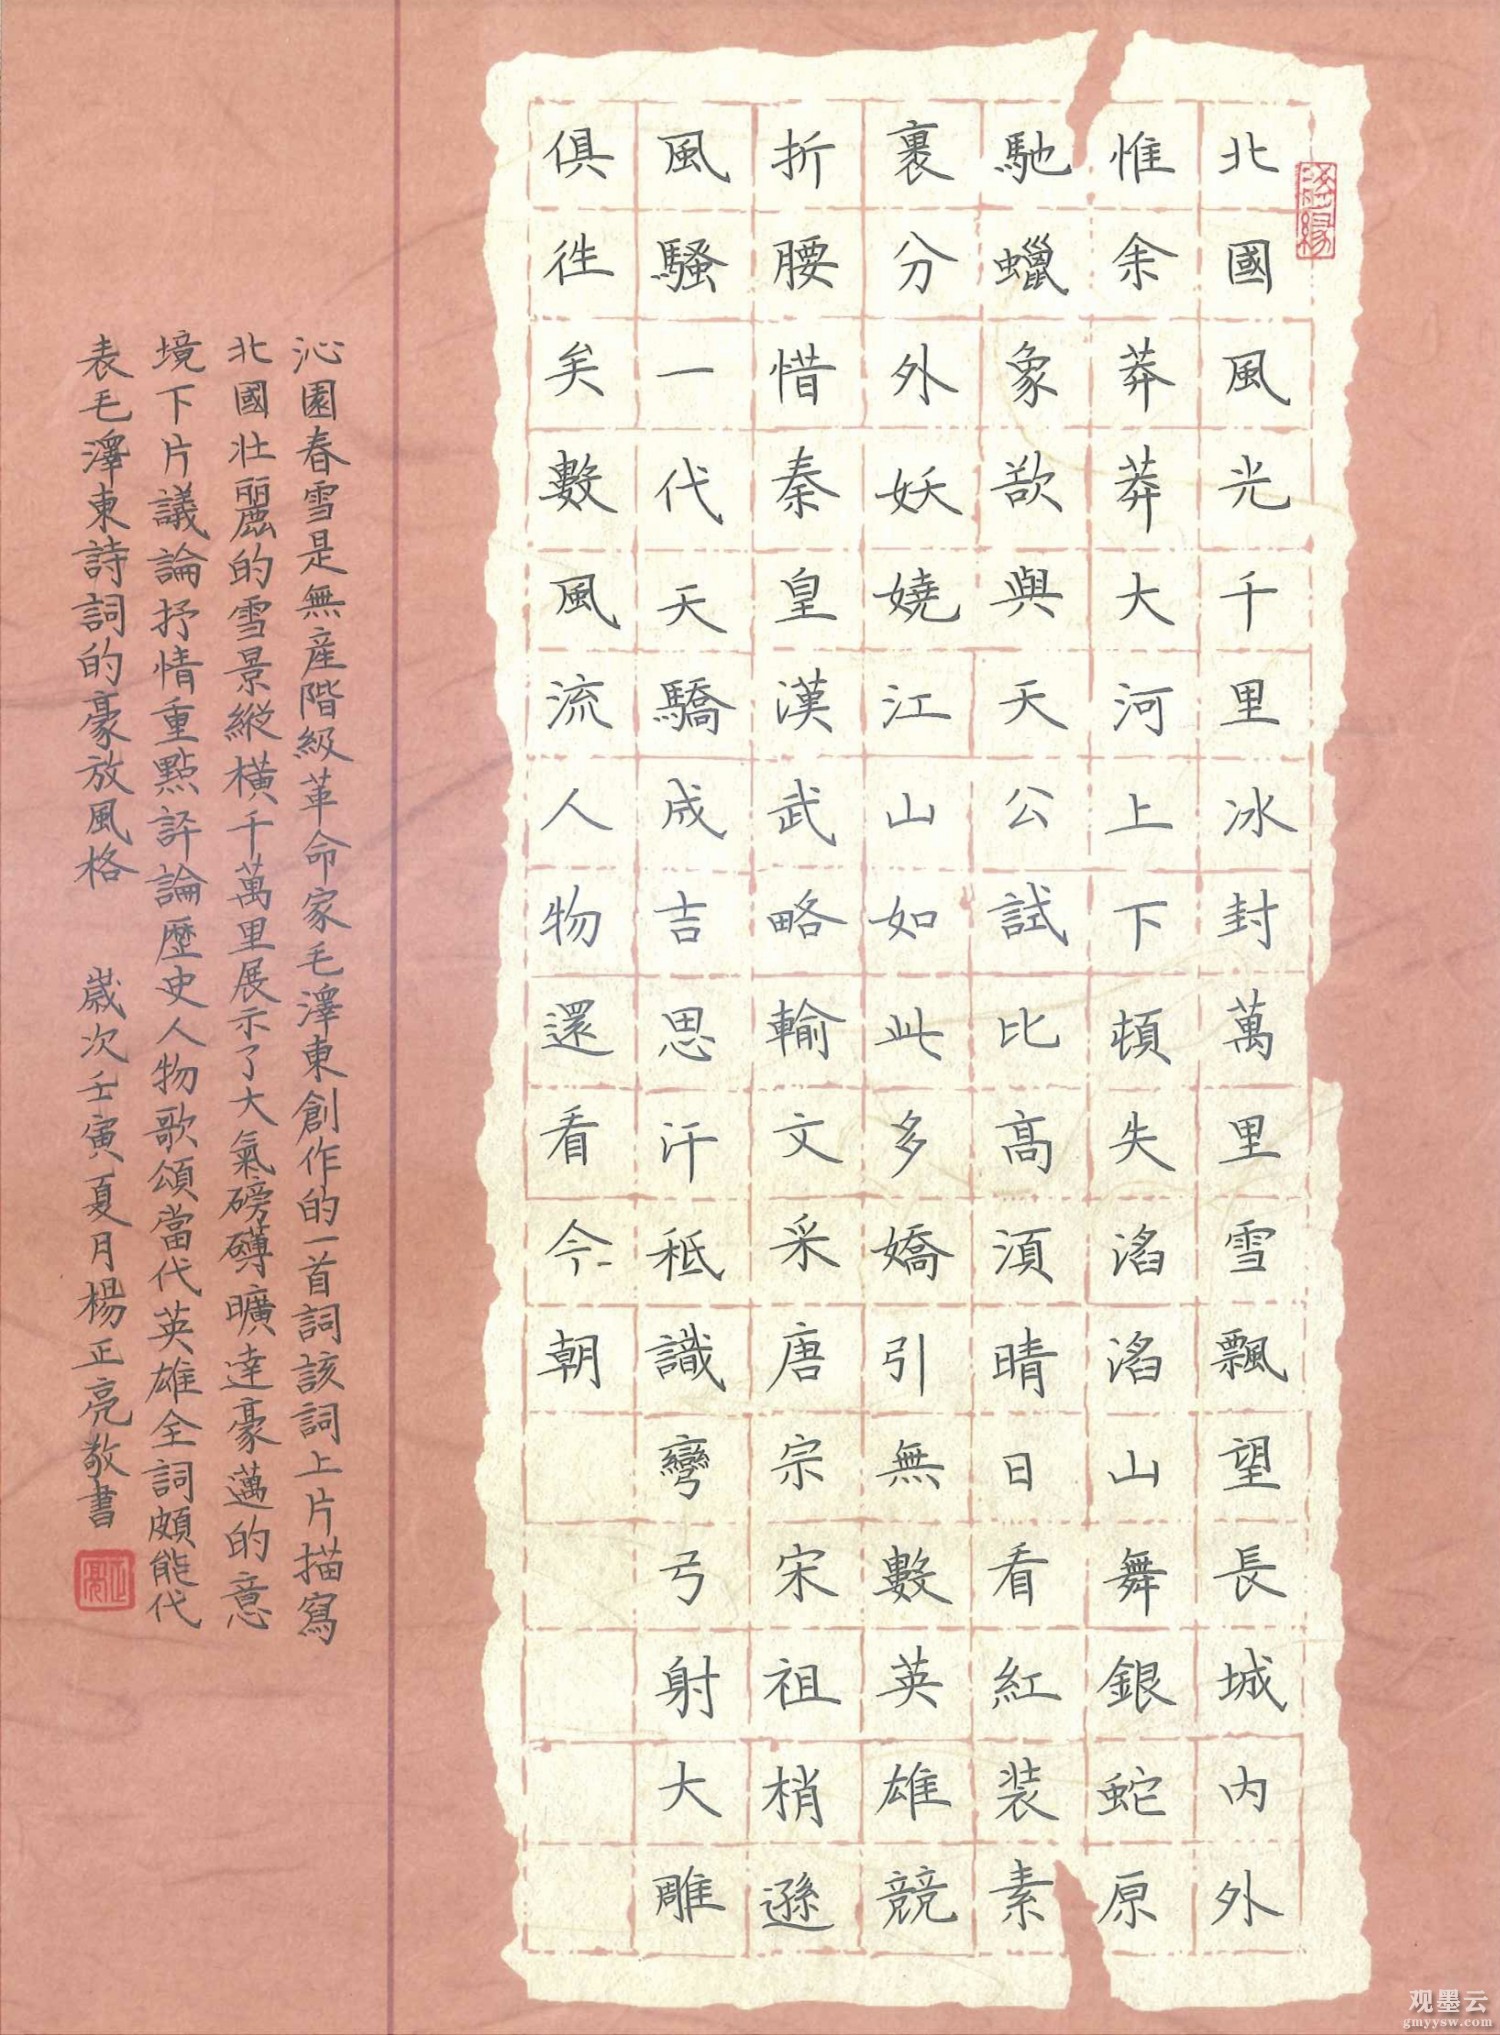 北國風光千里冰封萬里雪飄望長城內外
惟余莽莽大河上下頓失滔滔山舞銀蛇原
馳蠟象欲與天公試比高須晴日看紅装素
裹分外妖嬈江山如此多嬌引無數英雄競
折腰惜秦皇漢武略輸文采唐宗宋祖梢遜
風騷一代天驕成吉思汗秪識彎弓射大雕
俱往矣數風流人物還看今朝
沁園春雪是無産階級革命家毛澤東創作的一首詞該詞上片描寫
北國壯麗的雪景縱橫千萬里展示了大氣磅礴曠達豪邁的意
境下片議論抒情重點評論歷史人物歌頌當代英雄全詞頗能代
表毛澤東詩詞的豪放風格 歲次壬寅夏月楊正亮敬書
正亮
观墨云
gmyysw.com